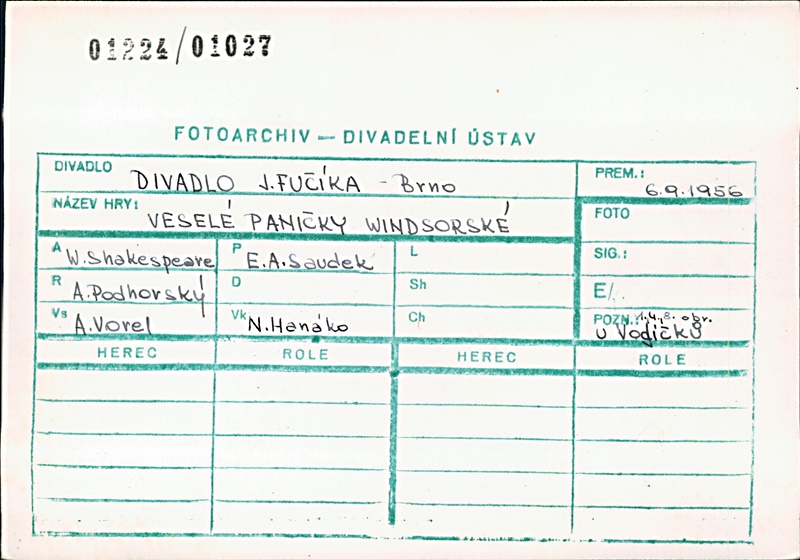 01224/01027
FOTOARCHIV — DIVADELNÍ ÚSTAV
DIVADLO DIVADLO J. FUČÍKA - Brno
PREM.: 6.9.1956
NÁZEV HRY: VESELÉ PANIČKY WINDSORSKÉ
FOTO
A W. Shakespeare P E.A. Saudek L
SIG.:
R A. Podhorský D Sh
E/.
Vs A. Vorel Vk N. Hanáko Ch
POZN.: 1.4., 8. obr.
u Vodičků
HEREC ROLE HEREC ROLE